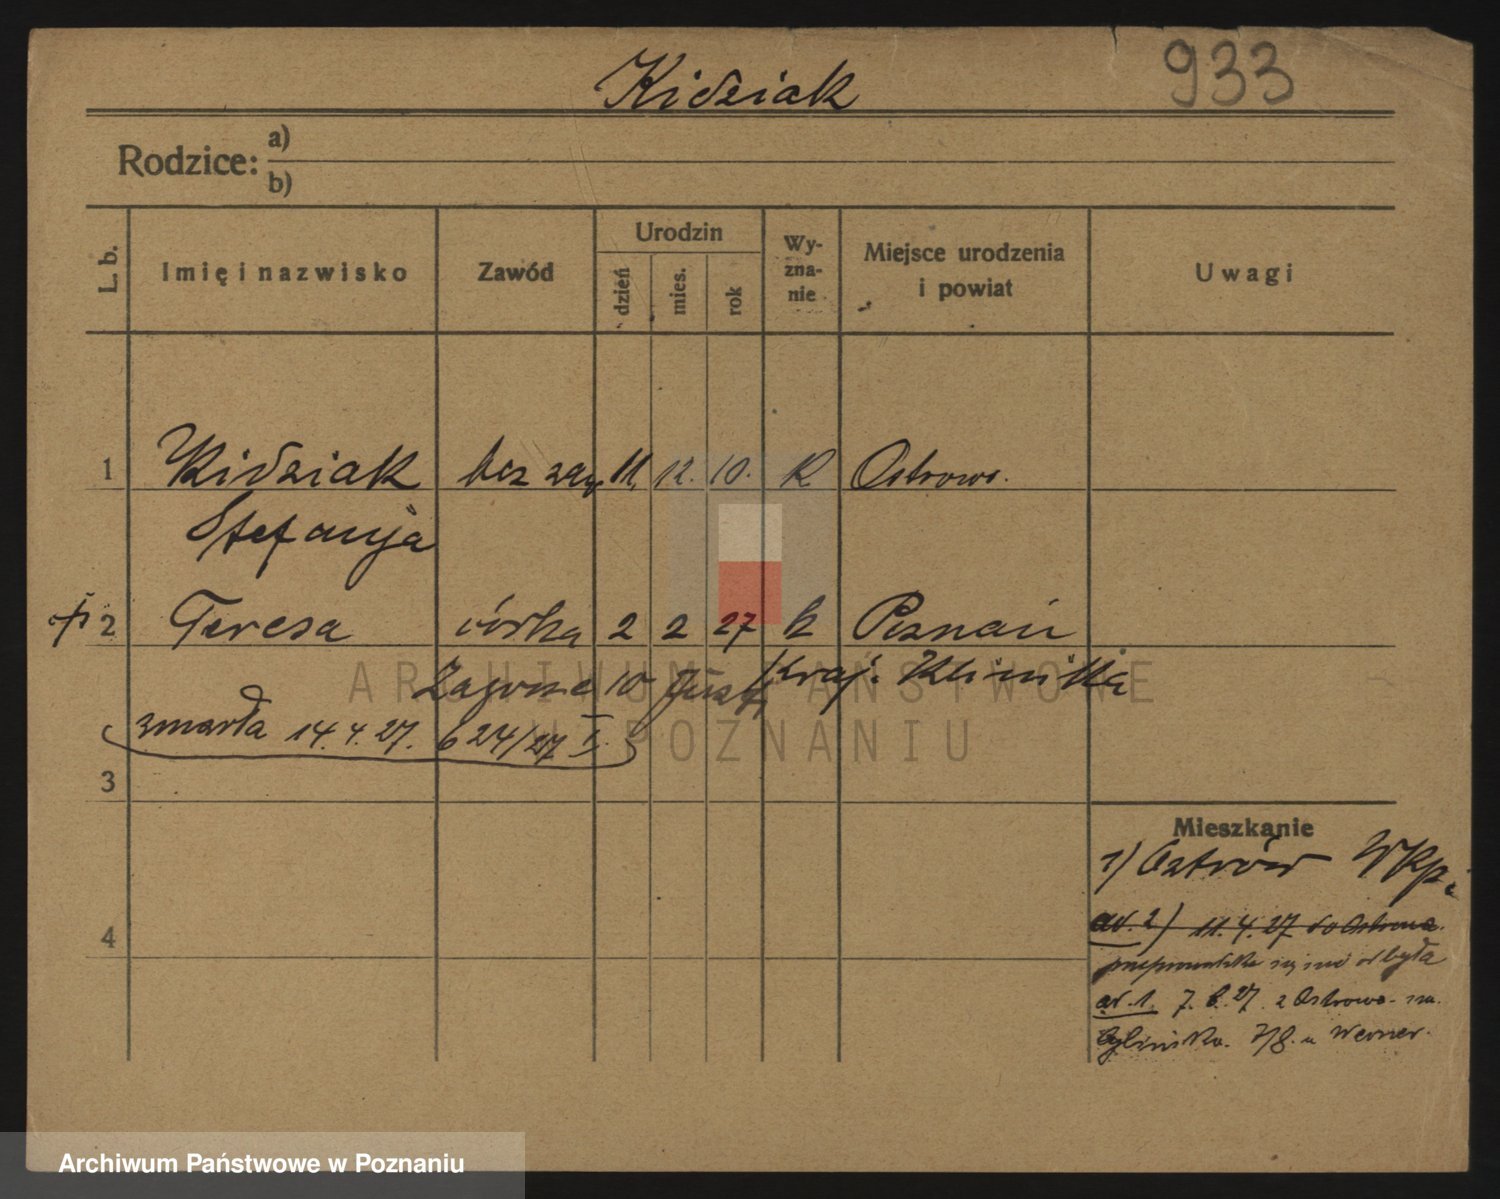 Kidziak 933
Rodzice: a)
b)
L. b. Imię i nazwisko Zawód Urodzin dzień mies. rok Wy-zna-nie Miejsce urodzenia i powiat Uwagi
1 Kidziak bez zaw. 11. 12. 10. K Ostrowo.
Stefanja
2 Teresa córka 2 2 27 k Poznań
10 Kraj. Klinika
zmarła 14.4.27. 624/27 I.
3
Mieszkanie
1) Ostrów Wkp.
ad. 2) 11.4.27 do Ostrowa.
się nie odbyła
4
ad. 1. 7. 6. 27. z Ostrowo.
7/8. u Werner.
ARCHIWUM PAŃSTWOWE
W POZNANIU
Archiwum Państwowe w Poznaniu